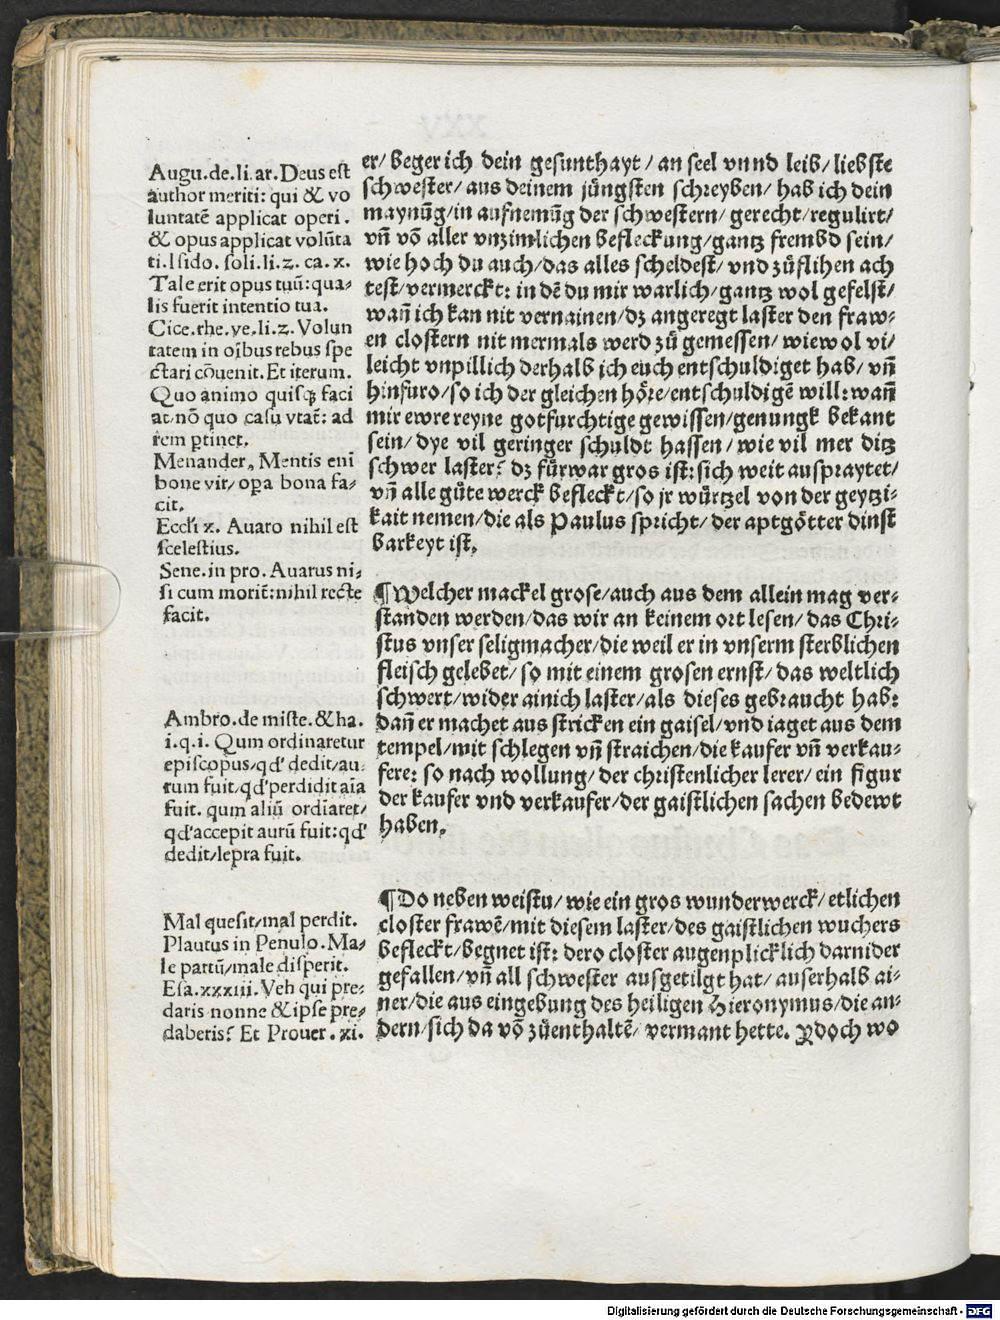 Augu.de.li.ar.Deus est
author meriti: qui & vo
luntatē applicat operi.
& opus applicat volūta
ti.Isido. soli.li.z. ca. x.
Tale erit opus tuū: qua⸗
lis fuerit intentio tua.
Cice.rhe.ve.li.z. Volun
tatem in oībus rebus spe
ctari cōuenit. Et iterum.
Quo animo quisqꝫ faci
at:nō quo casu vtat̄: ad
rem ꝑtinet.
Menander. Mentis enī
bone vir/ oꝑa bona fa⸗
cit.
Eccl'i x. Auaro nihil est
scelestius.
Sene.in pro. Auarus ni⸗
si cum morit̄: nihil recte
facit.
Ambro.de miste. & ha.
i.q.i. Qum ordinaretur
episcopus/qd' dedit/au⸗
rum fuit/qd'perdidit aīa
fuit. qum aliū ordīaret/
qd'accepit aurū fuit: qd'
dedit/lepra fuit.
Mal quesit/mal perdit.
Plautus in Penulo. Ma⸗
le partū/male disperit.
Esa.xxxiii. Veh qui pre⸗
daris nonne & ipse pre⸗
daberis? Et Prouer. xi.
er/ beger ich dein gesunthayt/ an seel vnnd leib/ liebste
schwester/ aus deinem jüngsten schreyben/ hab ich dein
maynūg/in aufnemūg der schwestern/ gerecht/regulirt/
vn̄ vō aller vnzimlichen befleckung/gantz frembd sein/
wie hoch du auch/das alles scheldest/ vnd zůflihen ach
test/vermerckt: in dē du mir warlich/gantz wol gefelst/
wan̄ ich kan nit vernainen/dz angeregt laster den fraw⸗
en clostern nit mermals werd zů gemessen/ wiewol vi⸗
leicht vnpillich derhalb ich euch entschuldiget hab/ vn̄
hinfuro/so ich der gleichen höre/entschuldigē will: wan̄
mir ewre reyne gotfurchtige gewissen/genungk bekant
sein/ dye vil geringer schuldt hassen/ wie vil mer ditz
schwer laster? dz fürwar gros ist: sich weit auspraytet/
vn̄ alle güte werck befleckt/so jr würtzel von der geytzi⸗
kait nemen/die als Paulus spricht/ der aptgötter dinst
barkeyt ist.
¶Welcher mackel grose/auch aus dem allein mag ver⸗
standen werden/das wir an keinem ort lesen/das Chri⸗
stus vnser seligmacher/die weil er in vnserm sterblichen
fleisch gelebet/ so mit einem grosen ernst/ das weltlich
schwert/wider ainich laster/als dieses gebraucht hab:
dan̄ er machet aus stricken ein gaisel/vnd iaget aus dem
tempel/mit schlegen vn̄ straichen/die kaufer vn̄ verkau⸗
fere: so nach wollung/ der christenlicher lerer/ ein figur
der kaufer vnd verkaufer/der gaistlichen sachen bedewt
haben.
¶Do neben weistu/ wie ein gros wunderwerck/ etlichen
closter frawē/mit diesem laster/des gaistlichen wuchers
befleckt/begnet ist: dero closter augenplicklich darnider
gefallen/ vn̄ all schwester ausgetilgt hat/ auserhalb ai⸗
ner/die aus eingebung des heiligen Hieronymus/die an⸗
dern/sich da vō zůenthaltē/ vermant hette. ꝑdoch wo
Digitalisierung gefördert durch die Deutsche Forschungsgemeinschaft - DFG